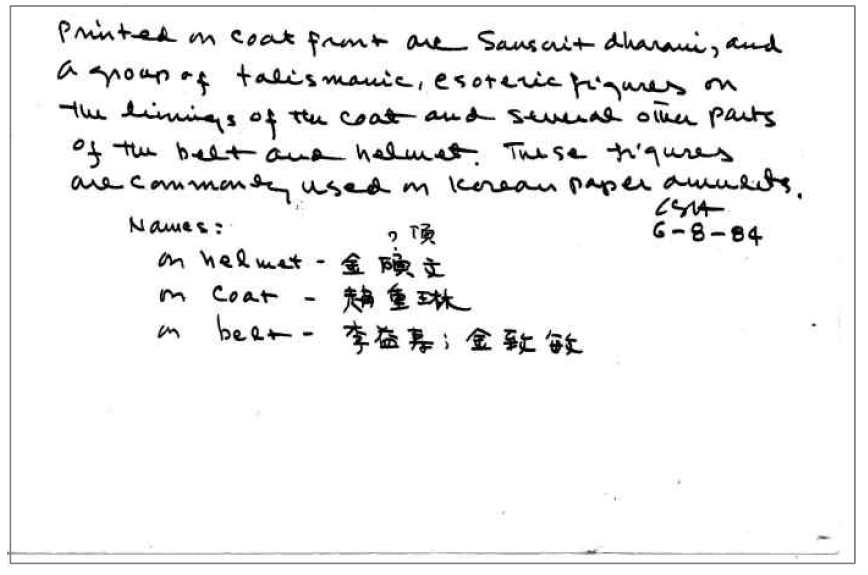 Printed on coat front are Sanscrit dharani, and
a group of talismanic, esoteric figures on
the linings of the coat and several other parts
of the belt and helmet. These figures
are commonly used on Korean paper amulets.
CSH
6-8-84
Names:
?項
on helmet - 金 文
on coat - 趙重琳
on belt - 李益 ; 金致敏